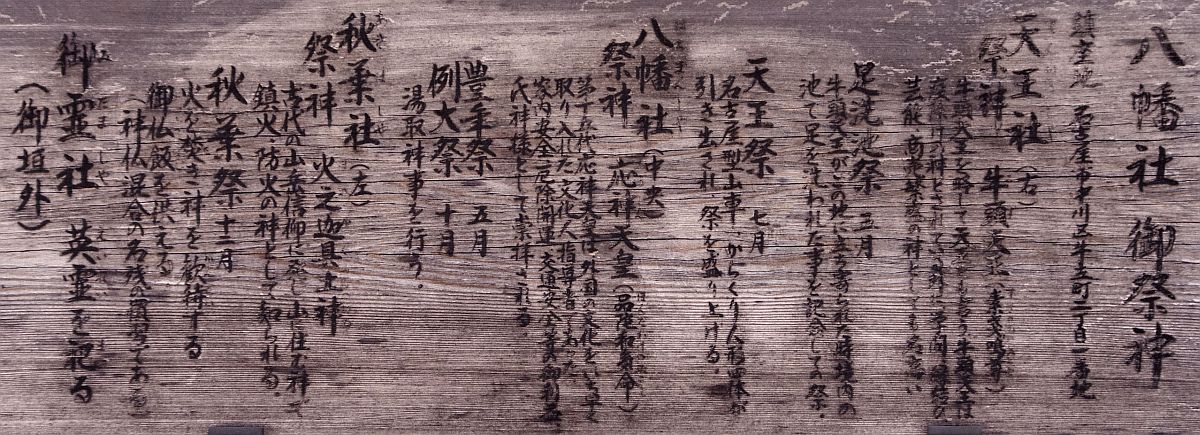 八幡社 御祭神
鎮座地 名古屋市中川区牛立町二丁目一番地
天王社(右)
祭神 牛頭天王(素戔嗚尊)
牛頭天王を略して天王とも言う牛頭天王は
の神とされて特に学問
芸能・商売繁盛の神としても名高い
足洗池祭 五月
牛頭天王がこの地に立ち寄られた時境内の
池で足を洗われた事を記念しての祭・
天王祭 七月
名古屋型山車、からくり人形屋体が
引き出され 祭を盛り上げる・
八幡社(中央)
祭神 応神天皇(品陀和気命)
第十五代応神天皇は外国の文化をいち早く
取り入れた文化人指導者であった
家内安全厄除開運交通安全等の御利益
氏神様として崇拝される
豊年祭 五月
例大祭 十月
湯取神事を行う・
秋葉社(左)
祭神 火之迦具土神
古代の山岳信仰に発し山に住む神で
鎮火・防火の神として知られる・
秋葉祭 十二月
火を焚き神を歓待する
御仏飯を供えする
(神仏混合の名残が習わしである)
御霊社 英霊を祀る
(御垣外)